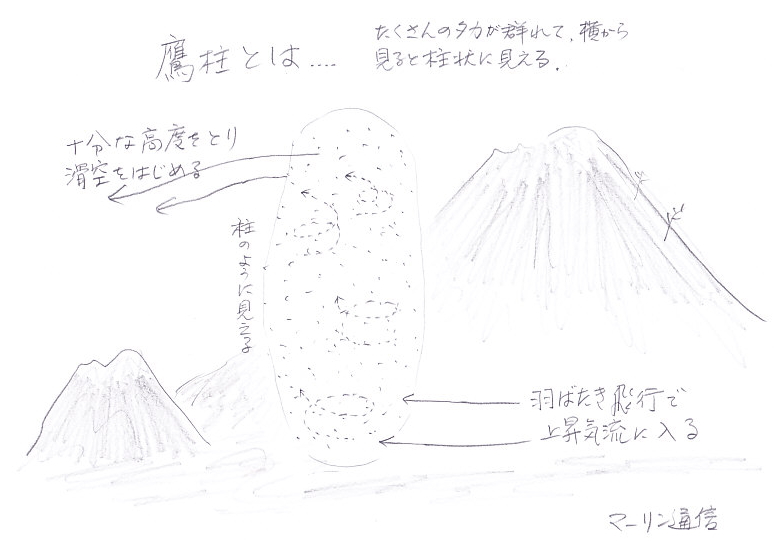 鷹柱とは....
たくさんのタカが群れて、横から
見ると柱状に見える.
十分な高度をとり
滑空をはじめる
柱のように見える
羽ばたき飛行で
上昇気流に入る
マーリン通信